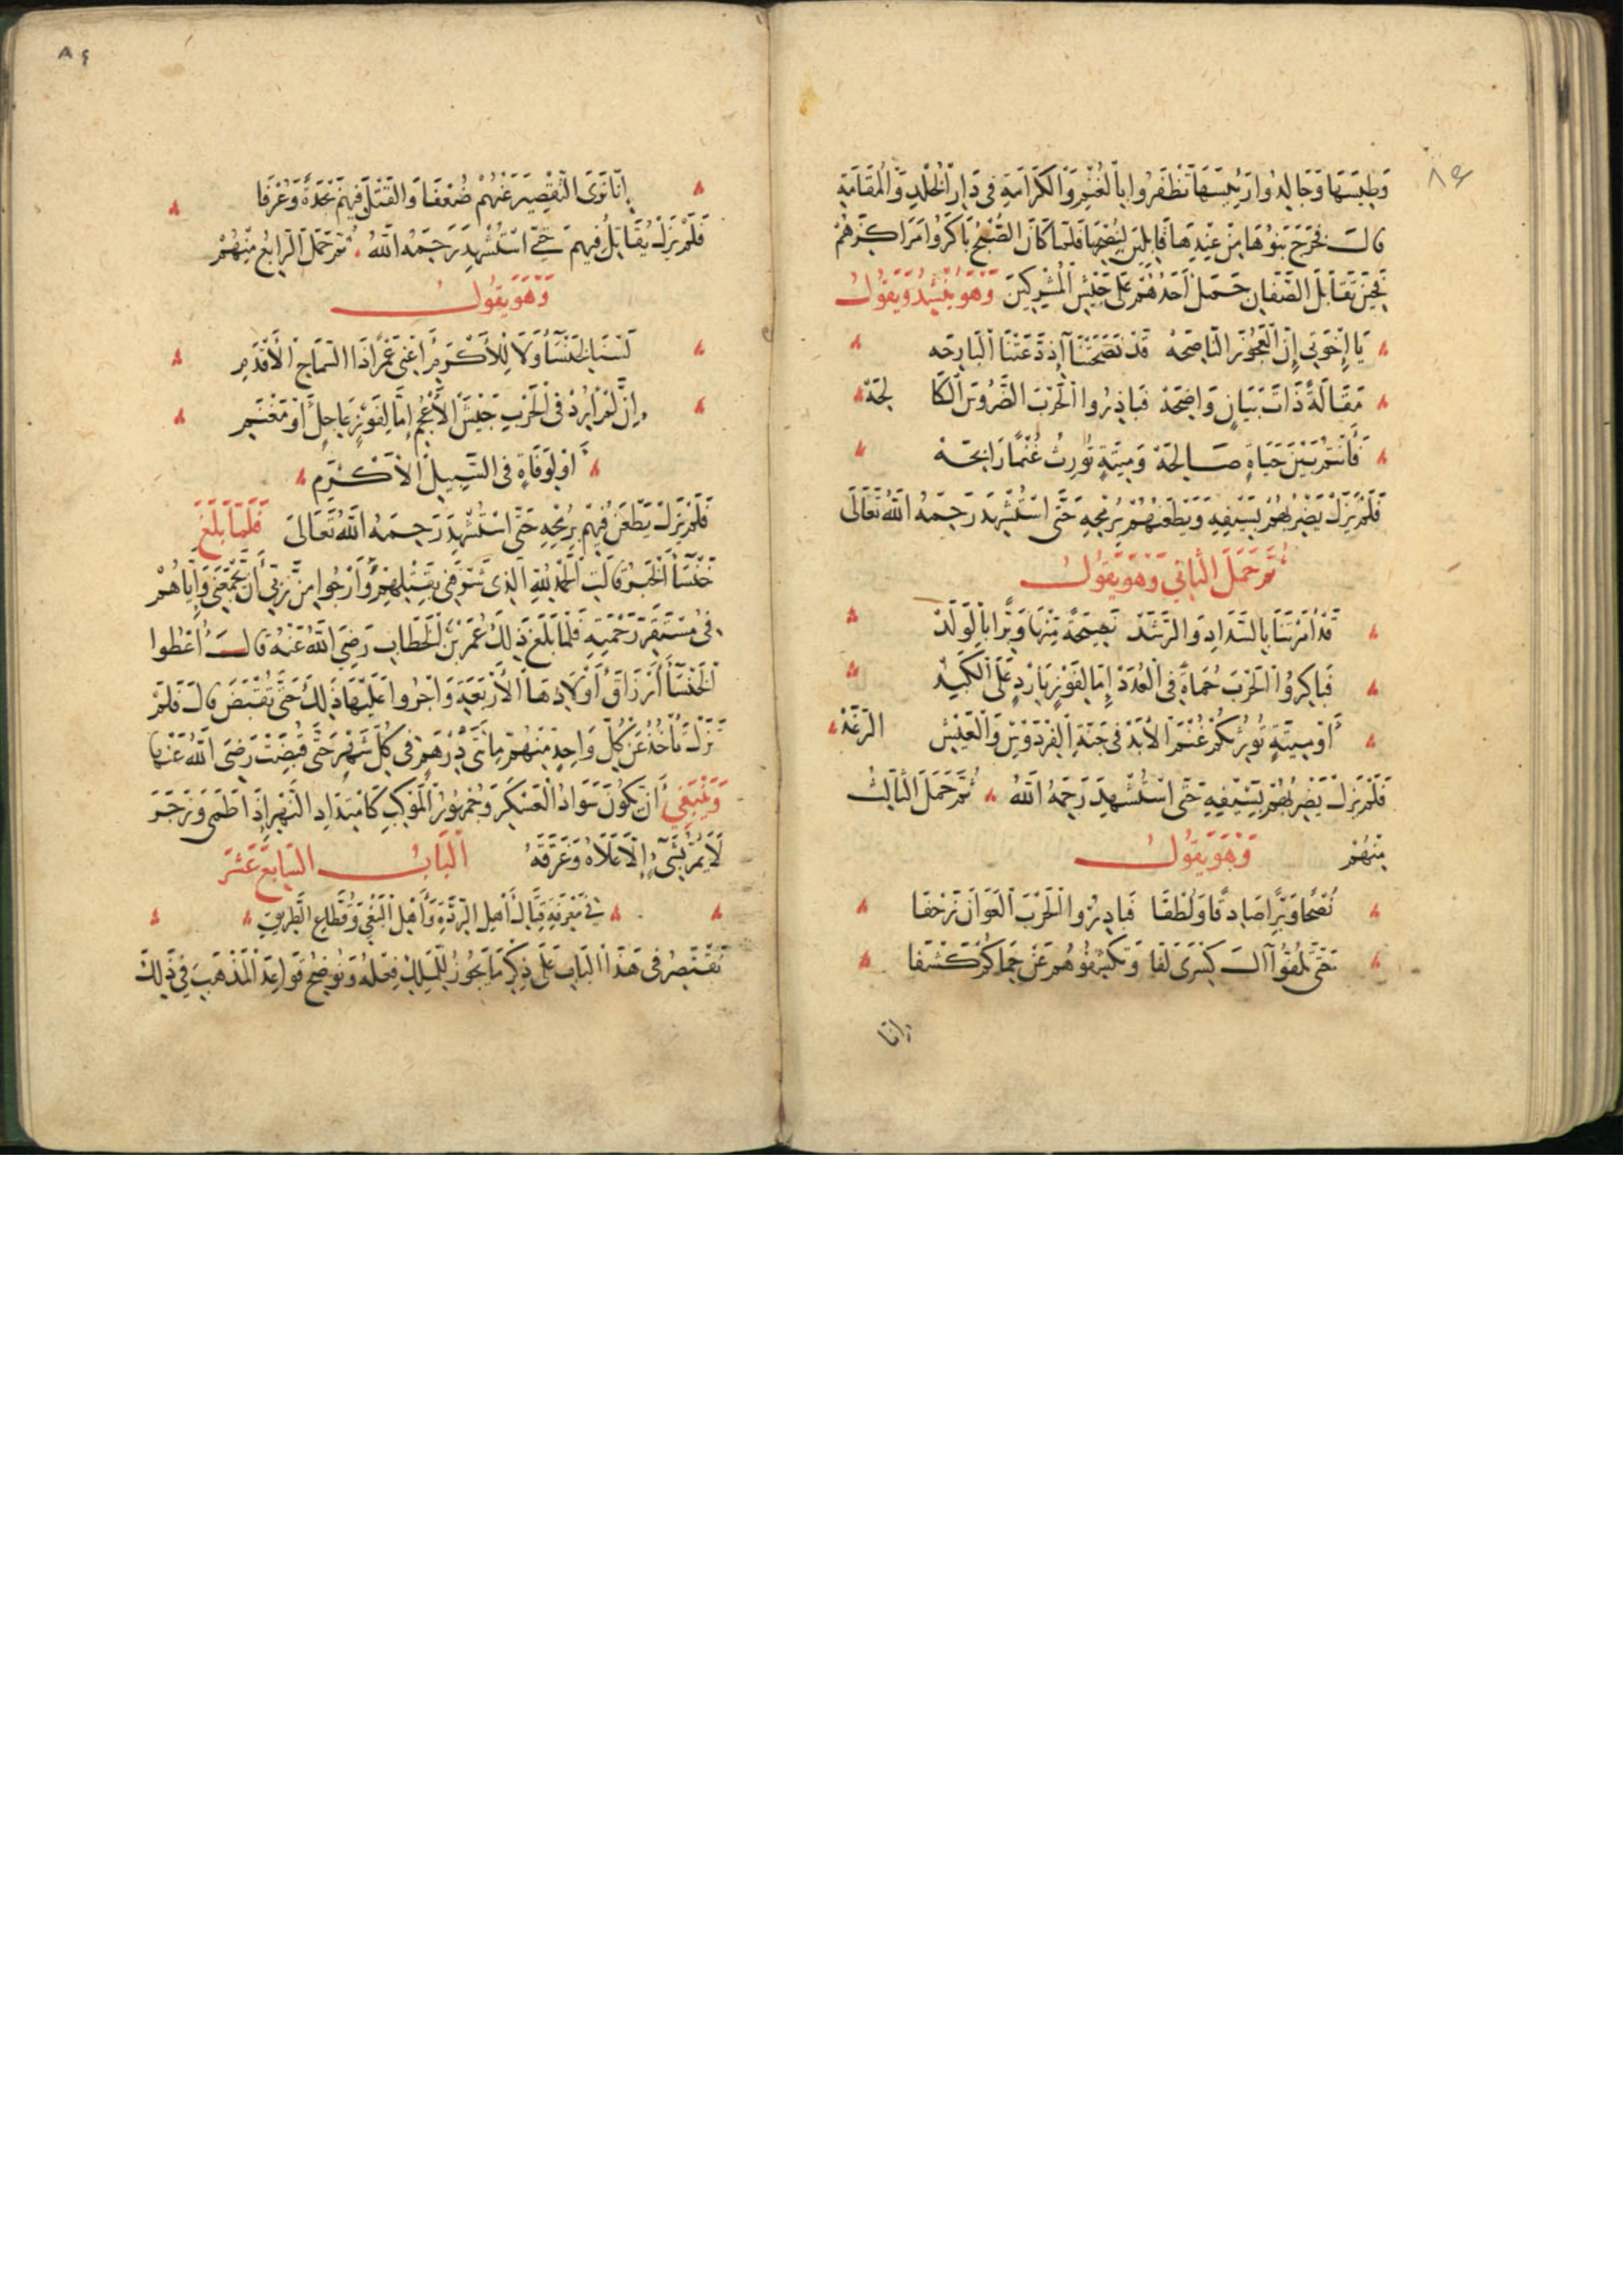 ٨٤
وَطِيسَهَا وَجَالِدُوا رَئِيسَهَا تَظْفَرُوا بِالْغُنْمِ وَالْكَرَامَةِ فِي دَارِ الْخُلْدِ وَالْمُقَامَةِ
قَالَ فَخَرَجَ بَنُوهَا مِنْ عِنْدِهَا قَابِلِينَ لِنُصْحِهَا فَلَمَّا كَانَ الصُّبْحُ بَاكَرُوا مَرَاكِزَهُمْ
فَحِينَ تَقَابَلَ الصَّفَّانِ حَمَلَ أَحَدُهُمْ عَلَى جَيْشِ الْمُشْرِكِينَ وَهُوَ يُنْشِدُ وَيَقُولُ
يَا إِخْوَتِي إِنَّ الْعَجُوزَ النَّاصِحَهْ قَدْ نَصَحَتْنَا إِذْ دَعَتْنَا الْبَارِحَه
مَقَالَةً ذَاتَ بَيَانٍ وَاضِحَهْ فَبَادِرُوا الْحَرْبَ الضَّرُوسَ الْكَا لِحَهْ
فَأَنْتُمْ بَيْنَ حَيَاةٍ صَالِحَهْ وَمِيتَةٍ تُورِثُ غُنْمًا رَابِحَهْ
فَلَمْ يَزَلْ يَضْرِبُهُمْ بِسَيْفِهِ وَيَطْعَنُهُمْ بِرُمْحِهِ حَتَّى اسْتُشْهِدَ رَحِمَهُ اللَّهُ تَعَالَى
ثُمَّ حَمَلَ الثَّانِي وَهُوَ يَقُولُ
قَدْ أَمَرَتْنَا بِالسَّدَادِ وَالرَّشَدْ نَصِيحَةً مِنْهَا وَبِرًّا بِالْوَلَدْ
فَبَاكِرُوا الْحَرْبَ حُمَاةً فِي الْعُدَدْ إِمَّا لِفَوْزٍ بَارِدٍ عَلَى الْكَبِدْ
أَوْ مِيتَةٍ تُورِثُكُمْ غُنْمَ الْأَبَدْ فِي جَنَّةِ الْفِرْدَوْسِ وَالْعَيْشِ الرَّغَدْ
فَلَمْ يَزَلْ يَضْرِبُهُمْ بِسَيْفِهِ حَتَّى اسْتُشْهِدَ رَحِمَهُ اللَّهُ ثُمَّ حَمَلَ الثَّالِثُ
مِنْهُمْ وَهُوَ يَقُولُ
نُصْحًا وَبِرًّا صَادِقًا وَلُطْفَا فَبَادِرُوا الْحَرْبَ الْعَوَانَ زَحْفَا
حَتَّى تَلُفُّوا آلَ كِسْرَى لَفَّا وَتَكْشِفُوهُمْ عَنْ حِمَاكُمْ كَشْفَا
إنا
٨٤
إِنَّا نَرَى التَّقْصِيرَ عَنْهُمْ ضُعْفَا وَالْقَتْلَ فِيهِمْ نَجْدَةً وَعُرْفَا
فَلَمْ يَزَلْ يُقَاتِلُ فِيهِمْ حَتَّى اسْتُشْهِدَ رَحِمَهُ اللَّهُ ثُمَّ حَمَلَ الرَّابِعُ مِنْهُمْ
وَهُوَ يَقُولُ
لَسْتُ لِخَنْسَاءَ وَلَا لِلْأَكْرَمِ أَعْنِي عَمْرًا ذَا السَّمَاحِ الْأَقْدَمِ
إِنْ لَمْ أَرِدْ فِي الْحَرْبِ جَيْشَ الْأَعْجَمِ إِمَّا لِفَوْزٍ عَاجِلٍ أَوْ مَغْنَمِ
أَوْ لِوَفَاةٍ فِي السَّبِيلِ الْأَكْرَمِ
فَلَمْ يَزَلْ يَطْعَنُ فِيهِمْ بِرُمْحِهِ حَتَّى اسْتُشْهِدَ رَحِمَهُ اللَّهُ تَعَالَى فَلَمَّا بَلَغَ
خَنْسَاءَ الْخَبَرُ قَالَتِ الْحَمْدُ لِلَّهِ الَّذِي شَرَّفَنِي بِقَتْلِهِمْ وَأَرْجُوا مِنْ رَبِّي أَنْ يَجْمَعَنِي وَإِيَّاهُمْ
فِي مُسْتَقَرِّ رَحْمَتِهِ فَلَمَّا بَلَغَ ذَلِكَ عُمَرَ بْنَ الْخَطَّابِ رَضِيَ اللَّهُ عَنْهُ قَالَ أَعْطُوا
الْخَنْسَاءَ أَرْزَاقَ أَوْلَادِهَا الْأَرْبَعَةِ وَاجْرُوا عَلَيْهَا ذَلِكَ حَتَّى تُقْبَضَ قَالَ فَلَمْ
تَزَلْ تَأْخُذُ عَنْ كُلِّ وَاحِدٍ مِنْهُمْ مِائَتَيْ دِرْهَمٍ فِي كُلِّ شَهْرٍ حَتَّى قُبِضَتْ رَضِيَ اللَّهُ عَنْهَا
وَيَنْبَغِي أَنْ يَكُونَ سَوَادُ الْعَسْكَرِ وَجُمْهُورُ الْمَوْكِبِ كَامْتِدَادِ النَّهْرِ إِذَا طَمَى وَزَخَرَ
لَا يَمُرُّ بِشَيْءٍ إِلَّا عَلَاهُ وَغَرَّقَهُ الْبَابُ السَّابِعُ عَشَرَ
فِي مَعْرِفَةِ قِتَالِ أَهْلِ الرِّدَّةِ وَأَهْلِ الْبَغْيِ وَقُطَّاعِ الطَّرِيقِ
نَقْتَصِرُ فِي هَذَا الْبَابِ عَلَى ذِكْرِ مَا يَجُوزُ لِلْمَلِكِ فِعْلُهُ وَنُوضِحُ قَوَاعِدَ الْمَذْهَبِ فِي ذَلِكَ